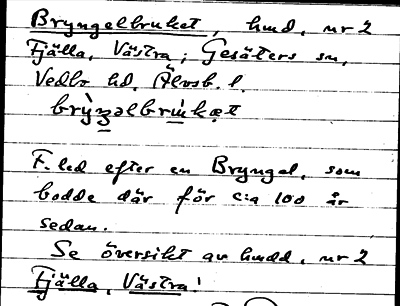 Bryngelbruket, hmd, nr 2
Fjälla, Västra; Gesäters sn,
Vedbo hd, Älvsb. l.
F. led efter en Bryngel, som
bodde där för c:a 100 år
sedan.
Se översikt av hmdd, nr 2
Fjälla, Västra!